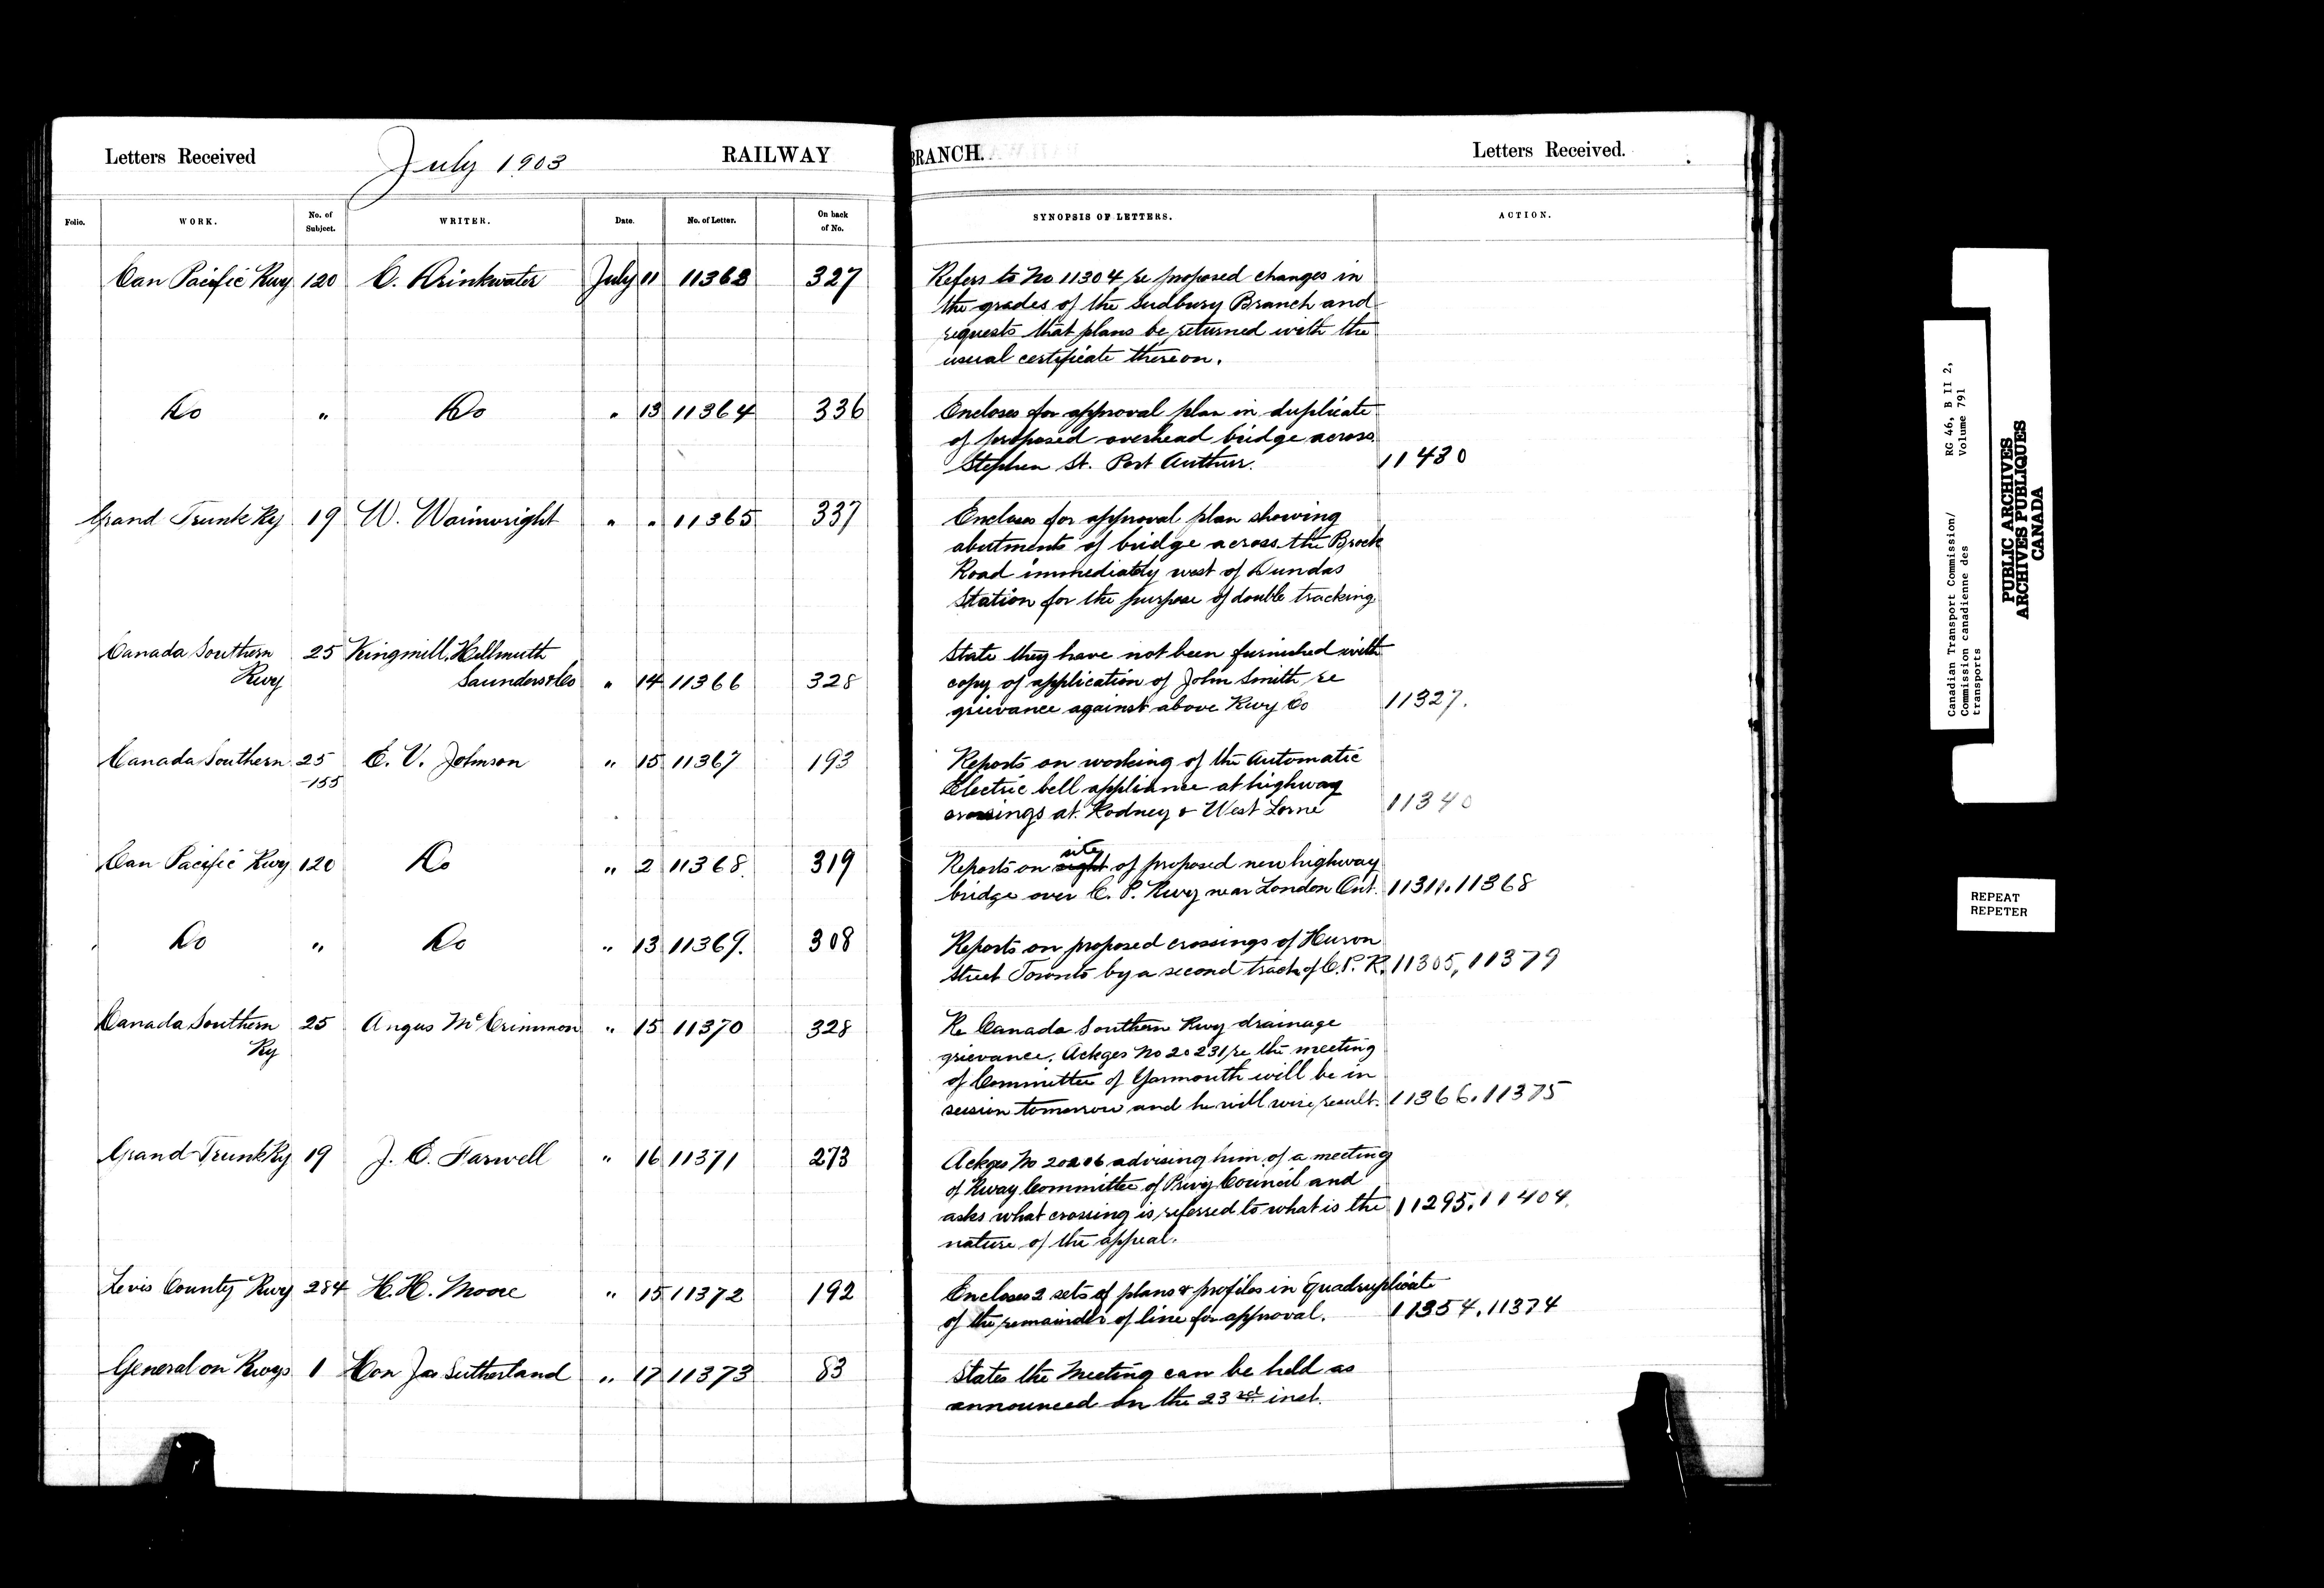 Letters Received July 1903 RAILWAY BRANCH. Letters Received.
Folio. WORK. No. of Subject. WRITER. Date. No. of Letter. On back of No. SYNOPSIS OF LETTERS. ACTION.
Can Pacific Rwy 120 C. Drinkwater July 11 11363 327 Refers to No 11304 re proposed changes in
the grades of the Sudbury Branch and
requests that plans be returned with the
usual certificate thereon.
Do " Do " 13 11364 336 Encloses for approval plan in duplicate
of proposed overhead bridge across
Stephen St. Port Authur. 11430
Grand Trunk Ry 19 W. Wainwright " " 11365 337 Encloses for approval plan showing
abutments of bridge across the Brock
Road immediately west of Dundas
Station for the purpose of double tracking
Canada Southern 25 Kingmill, Hellmuth State they have not been furnished with
Rwy Saunders & Co " 14 11366 328 copy of application of John Smith re
grievance against above Rwy Co 11327.
Canada Southern 25 E. V. Johnson " 15 11367 193 Reports on working of the Automatic
-155 Electric bell appliance at highway
crossings at Rodney & West Lorne 11340
Can Pacific Rwy 120 Do " 2 11368. 319 Reports on sight site of proposed new highway
bridge over C. P. Rwy near London Ont. 11311.11368
Do " Do " 13 11369. 308 Reports on proposed crossings of Huron
Street Toronto by a second track of C.P.R. 11305, 11379
Canada Southern 25 Angus McCrimmon " 15 11370 328 Re Canada Southern Rwy drainage
Ry grievance. Ackges No 20231 re the meeting
of Committee of Yarmouth will be in
session tomorrow and he will wire result. 11366.11375
Grand Trunk Ry 19 J. E. Farwell " 16 11371 273 Ackges No 20206 advising him of a meeting
of Rway Committee of Privy Council and
asks what crossing is referred to what is the 11295.11404.
nature of the appeal.
Levis County Rwy 284 H. H. Moore " 15 11372 192 Encloses 2 sets of plans & profiles in quadruplicate
of the remainder of line for approval. 11354.11374
General on Rwys 1 Hon Jas Sutherland " 17 11373 83 States the Meeting can be held as
announced on the 23rd inst.
Canadian Transport Commission/ RG 46, B II 2,
Commission canadienne des Volume 791
transports
PUBLIC ARCHIVES
ARCHIVES PUBLIQUES
CANADA
REPEAT
REPETER